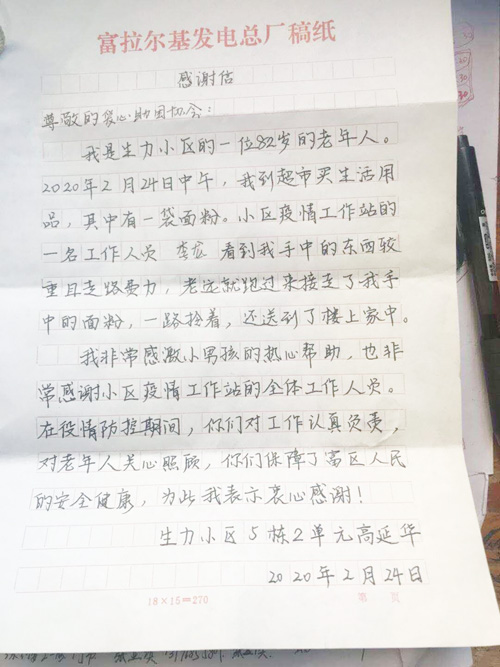 富拉尔基发电总厂稿纸
感谢信
尊敬的爱心助困协会：
我是生力小区的一位82岁的老年人。
2020年2月24日中午，我到超市买生活用
品，其中有一袋面粉。小区疫情工作站的
一名工作人员 看到我手中的东西较
重且走路费力，老远就跑过来接走了我手
中的面粉，一路拎着，还送到了楼上家中。
我非常感激小男孩的热心帮助，也非
常感谢小区疫情工作站的全体工作人员。
在疫情防控期间，你们对工作认真负责，
对老年人关心照顾，你们保障了富区人民
的安全健康，为此我表示衷心感谢！
生力小区5栋2单元高延华
2020年2月24日
18×15=270
第 页